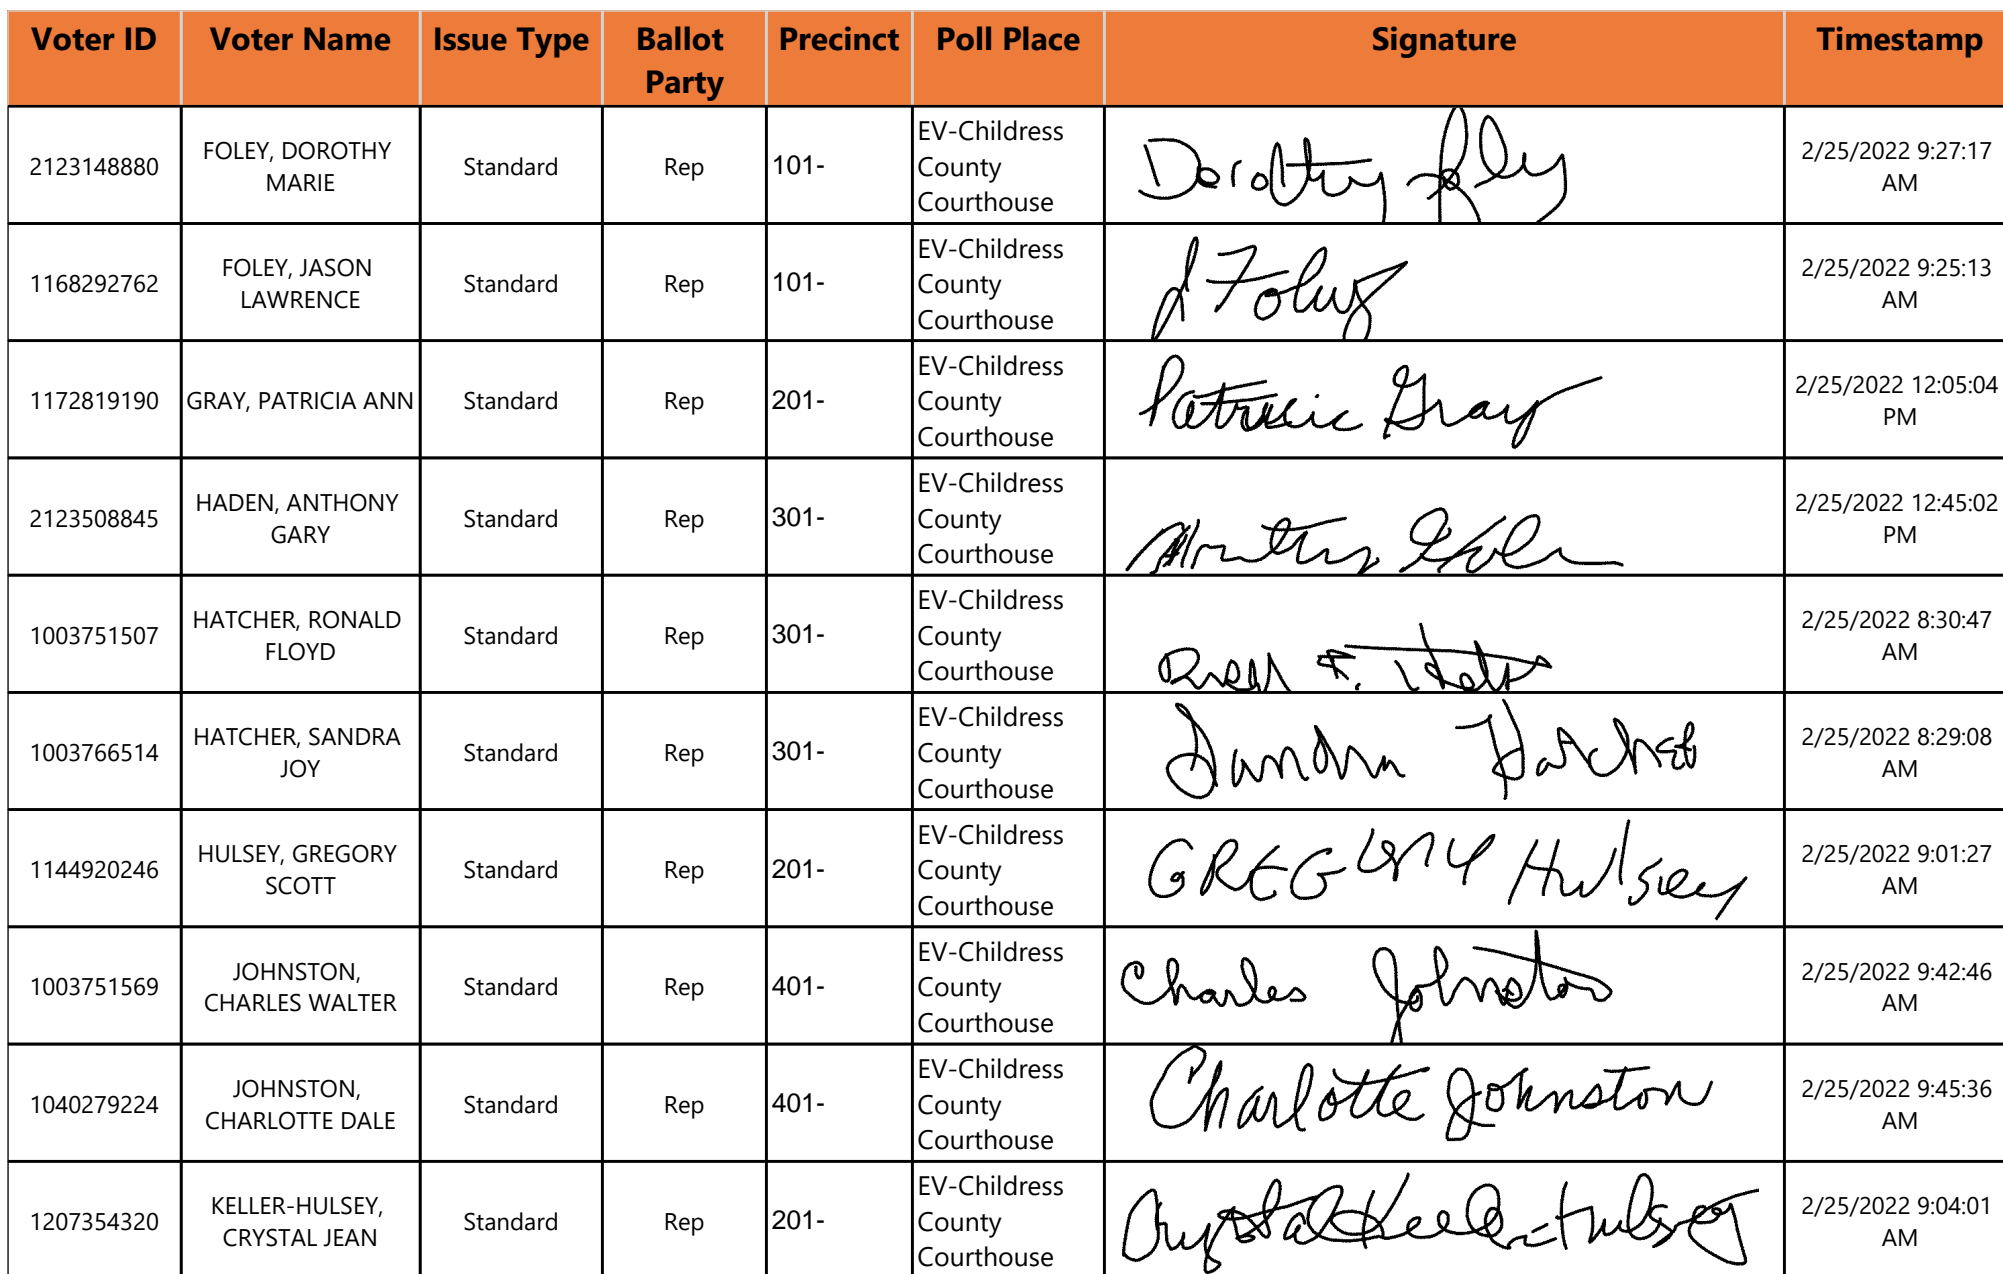 Voter ID Voter Name Issue Type Ballot Party Precinct Poll Place Signature Timestamp
2123148880 FOLEY, DOROTHY MARIE Standard Rep 101- EV-Childress County Courthouse Dorothy Foley 2/25/2022 9:27:17 AM
1168292762 FOLEY, JASON LAWRENCE Standard Rep 101- EV-Childress County Courthouse J Foley 2/25/2022 9:25:13 AM
1172819190 GRAY, PATRICIA ANN Standard Rep 201- EV-Childress County Courthouse Patricia Gray 2/25/2022 12:05:04 PM
2123508845 HADEN, ANTHONY GARY Standard Rep 301- EV-Childress County Courthouse 2/25/2022 12:45:02 PM
1003751507 HATCHER, RONALD FLOYD Standard Rep 301- EV-Childress County Courthouse 2/25/2022 8:30:47 AM
1003766514 HATCHER, SANDRA JOY Standard Rep 301- EV-Childress County Courthouse Sandra Hatcher 2/25/2022 8:29:08 AM
1144920246 HULSEY, GREGORY SCOTT Standard Rep 201- EV-Childress County Courthouse GREGORY Hulsey 2/25/2022 9:01:27 AM
1003751569 JOHNSTON, CHARLES WALTER Standard Rep 401- EV-Childress County Courthouse Charles Johnston 2/25/2022 9:42:46 AM
1040279224 JOHNSTON, CHARLOTTE DALE Standard Rep 401- EV-Childress County Courthouse Charlotte Johnston 2/25/2022 9:45:36 AM
1207354320 KELLER-HULSEY, CRYSTAL JEAN Standard Rep 201- EV-Childress County Courthouse Crystal Keller-Hulsey 2/25/2022 9:04:01 AM